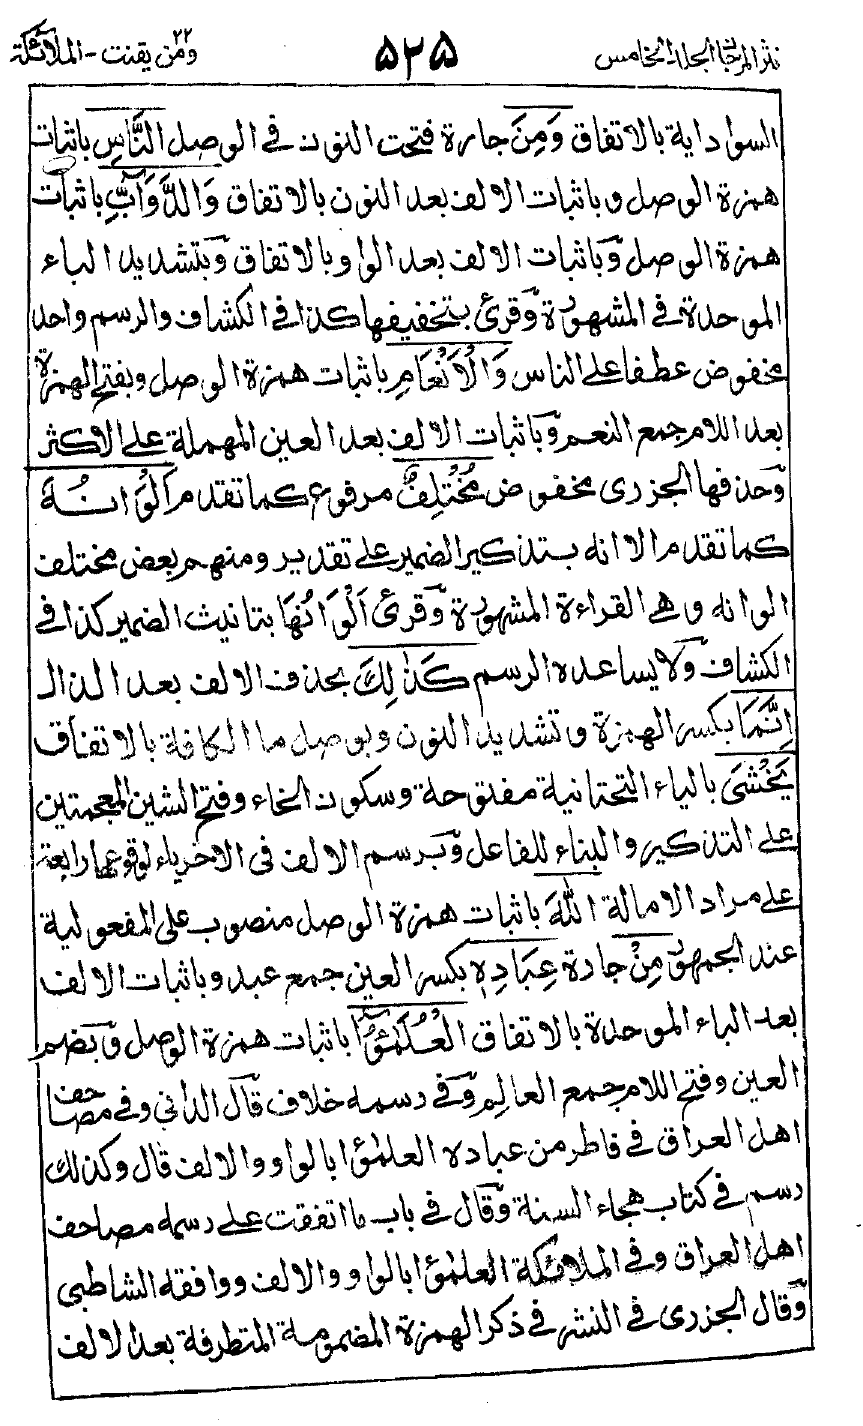 نثر المرجان الجلد الخامس ٥٢٥ ومن يقنت ٢٢ - الملآئكة
السوا داية بالاتفاق وَمِنَ جارة فتحت النون في الوصل النَّاسِ باثبات
همزة الوصل وباثبات الالف بعد النون بالاتفاق وَالدَّوَآبِّ باثبات
همزة الوصل وباثبات الالف بعد الواو بالاتفاق وبتشديد الباء
الموحدة في المشهورة وقرئ بتخفيفها كذا في الكشاف والرسم واحد
مخفوض عطفا على الناس وَالْاَنْعَامِ باثبات همزة الوصل وبفتح الهمزة
بعد اللام جمع النعم وباثبات الالف بعد العين المهملة على الاكثر
وحذفها الجزرى مخفوض مُخْتَلِفٌ مرفوع كما تقدم اَلْوَانُهُ
كما تقدم الا انه بتذكير الضمير على تقدير ومنهم بعض مختلف
الوانه وهي القراءة المشهورة وقرئ اَلْوَانُهَا بتانيث الضمير كذا في
الكشاف ولا يساعده الرسم كَذٰلِكَ بحذف الالف بعد الذال
اِنَّمَا بكسر الهمزة وتشديد النون وبوصل ما الكافة بالاتفاق
يَخْشَى بالياء التحتانية مفتوحة وسكون الخاء وفتح الشين المعجمتين
على التذكير والبناء للفاعل وبرسم الالف في الاخر ياء لوقوعها رابعة
على مراد الامالة اللّٰهَ باثبات همزة الوصل منصوب على المفعولية
عند الجمهور مِنْ جارة عِبَادِهِ بكسر العين جمع عبد وباثبات الالف
بعد الباء الموحدة بالاتفاق الْعُلَمٰٓؤُا باثبات همزة الوصل وبضم
العين وفتح اللام جمع العالم وفي رسمه خلاف قال الداني وفي مصاحف
اهل العراق في فاطر من عباده العلمٰؤا بالواو والالف قال وكذلك
رسم في كتاب هجاء السنة وقال في باب ما اتفقت على رسمه مصاحف
اهل العراق وفي الملائكة العلمٰؤا بالواو والالف ووافقه الشاطبي
وقال الجزرى في النشر في ذكر الهمزة المضمومة المتطرفة بعد الالف